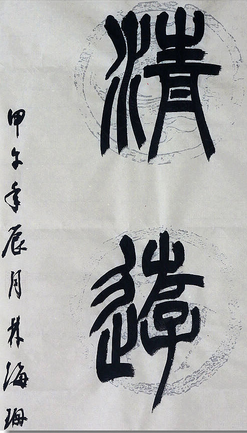 清遊
甲午年辰月林海珊